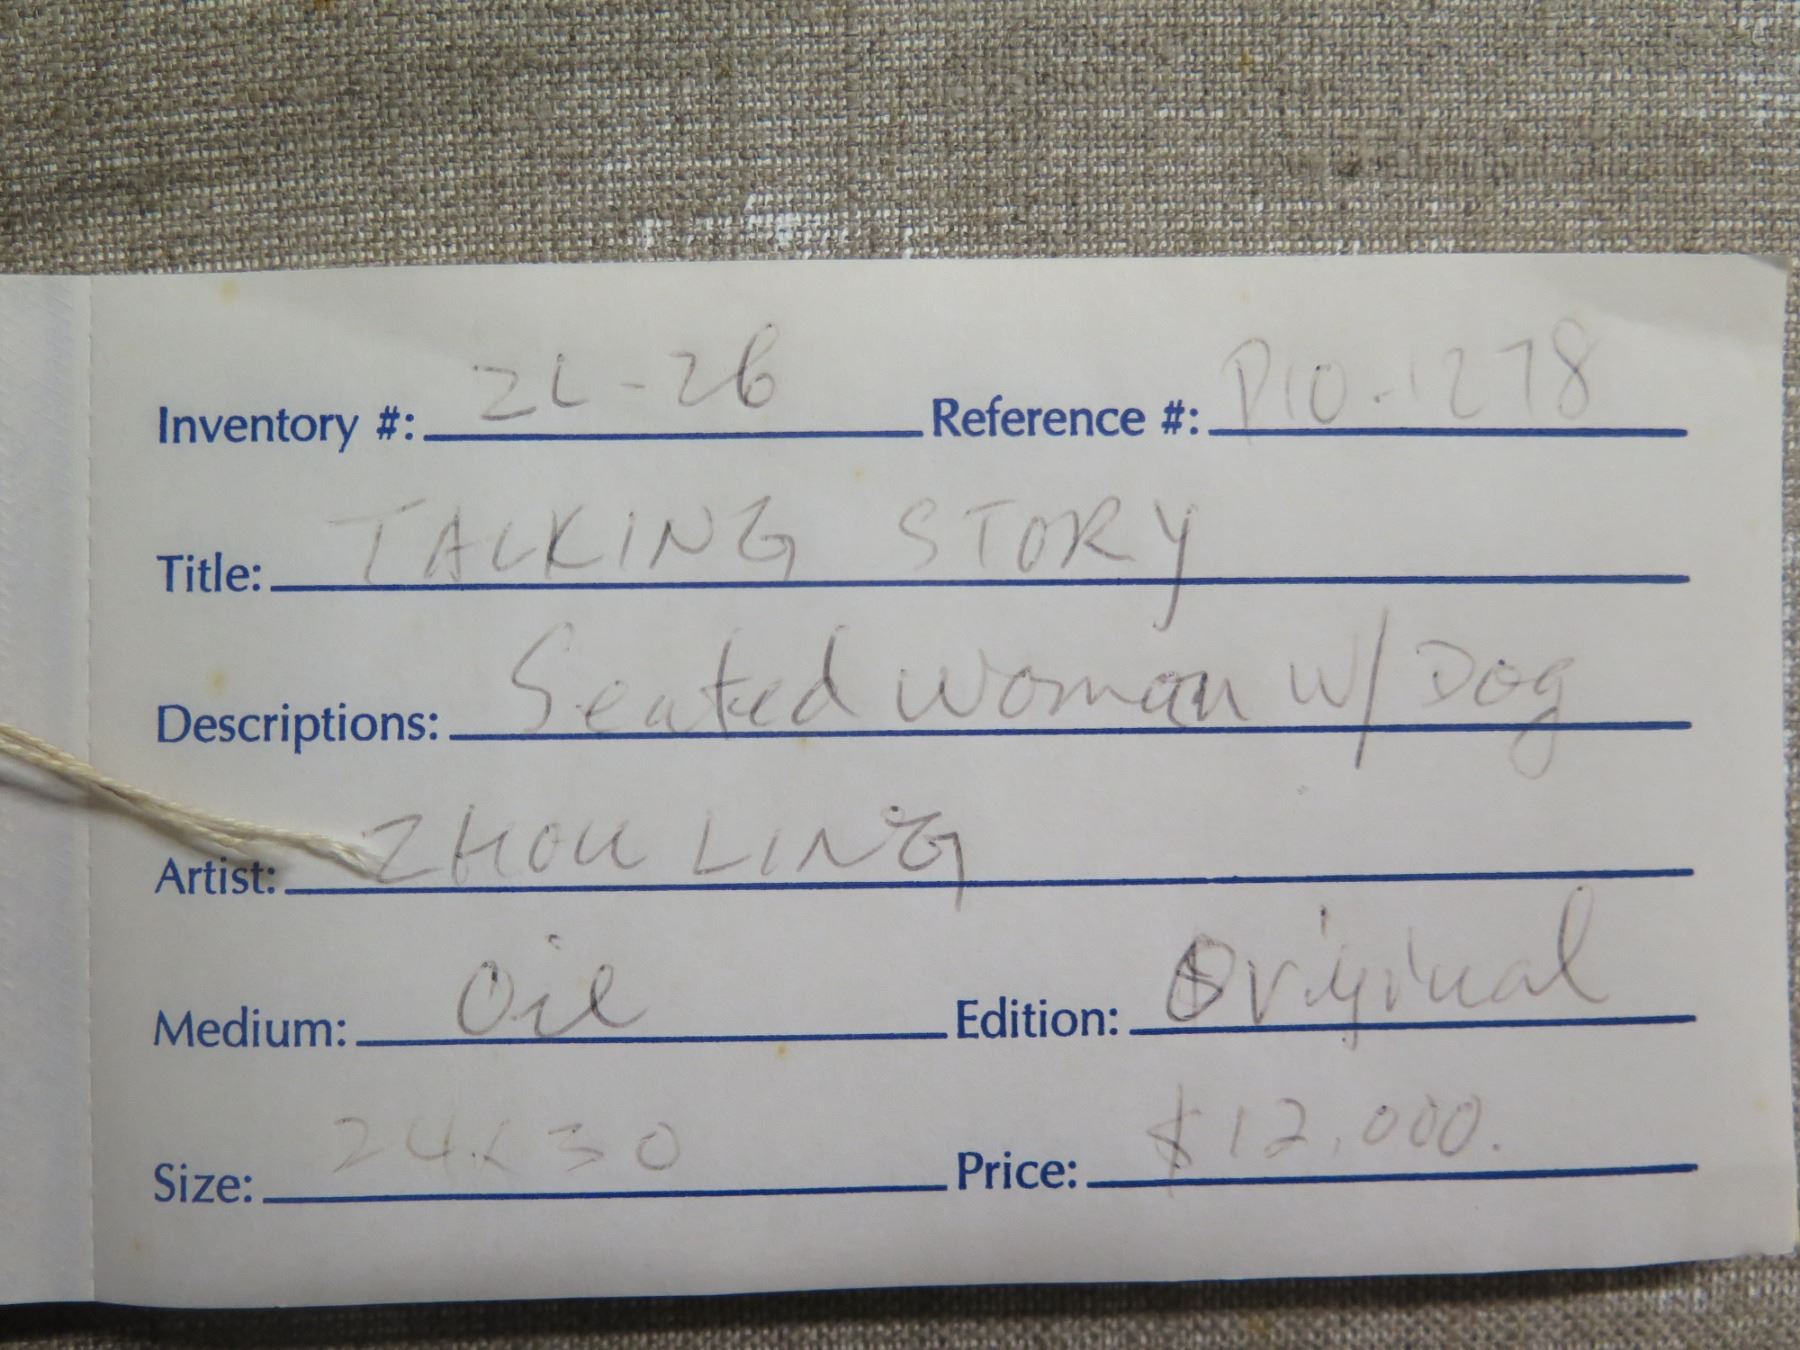 Inventory #: ZL-26 Reference #: P10-1278
Title: TALKING STORY
Descriptions: Seated Woman w/ Dog
Artist: ZHOU LING
Medium: Oil Edition: Original
Size: 24x30 Price: $12,000.